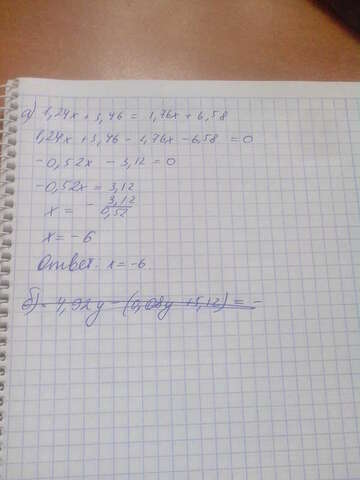 а) 1,24x + 3,46 = 1,76x + 6,58
1,24x + 3,46 - 1,76x - 6,58 = 0
-0,52x - 3,12 = 0
-0,52x = 3,12
x = - 3,12/0,52
x = -6
Ответ. x = -6
б) - 4,92y - (0,08y + 5,12) = -